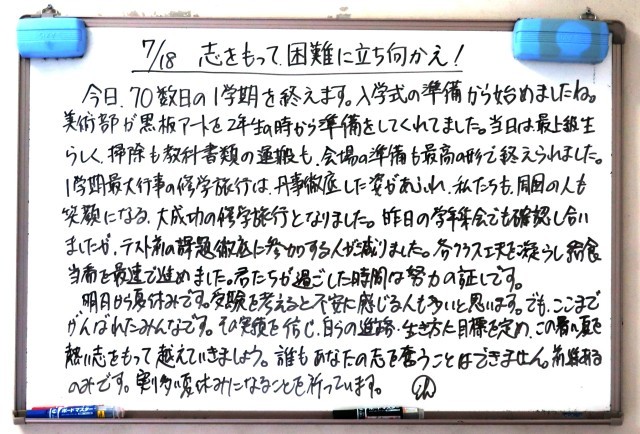 7/18 志をもって、困難に立ち向かえ!
今日、70数日の1学期を終えます。入学式の準備から始めましたね。
美術部が黒板アートを2年生の時から準備をしてくれてました。当日は最上級生
らしく、掃除も教科書類の運搬も、会場の準備も最高の形で終えられました。
1学期最大行事の修学旅行は、凡事徹底した姿があふれ、私たちも、周囲の人も
笑顔になる、大成功の修学旅行となりました。昨日の学年集会でも確認し合い
ましたが、テスト前の課題徹底に参加する人が減りました。各クラス工夫を凝らし給食
当番を最速で進めました。君たちが過ごした時間は努力の証しです。
明日から夏休みです。受験を考えると不安に感じる人も多いと思います。でも、ここまで
がんばれたみんなです。その実績を信じ、自らの進路・生き方に目標を定め、この暑い夏を
熱い志をもって越えていきましょう。誰もあなたの志を奪うことはできません。前進ある
のみです。実り多い夏休みになることを祈っています。
ボードマスター